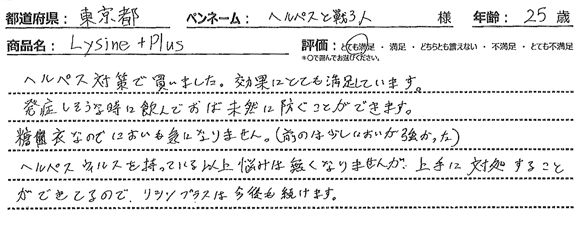 都道府県: 東京都 ペンネーム: ヘルペスと戦う人 様 年齢: 25 歳
商品名: Lysine +Plus 評価: とても満足 ・ 満足 ・ どちらとも言えない ・ 不満足 ・ とても不満足
*○で囲んでお選びください。
ヘルペス対策で買いました。効果にとても満足しています。
発症しそうな時に飲んでおけば未然に防ぐことができます。
糖衣なのでにおいも気になりません。(前のは少しにおいが強かった)
ヘルペスウィルスを持っている以上悩みは無くなりませんが、上手に対処すること
ができてるので、リシンプラスは今後も続けます。